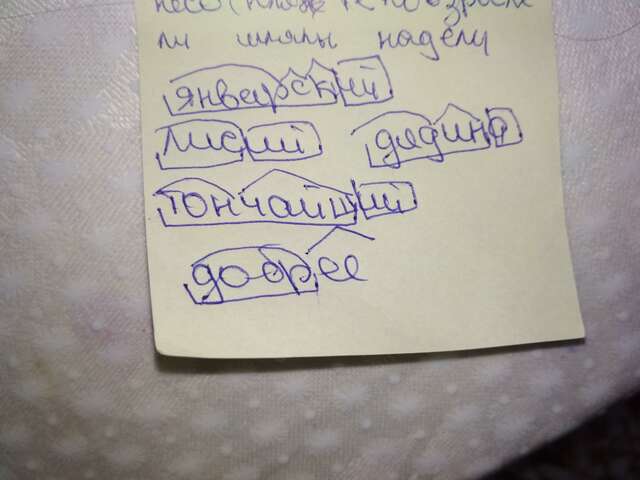 ли шляпы надели
январский
лисий дядино
тончайший
добрее